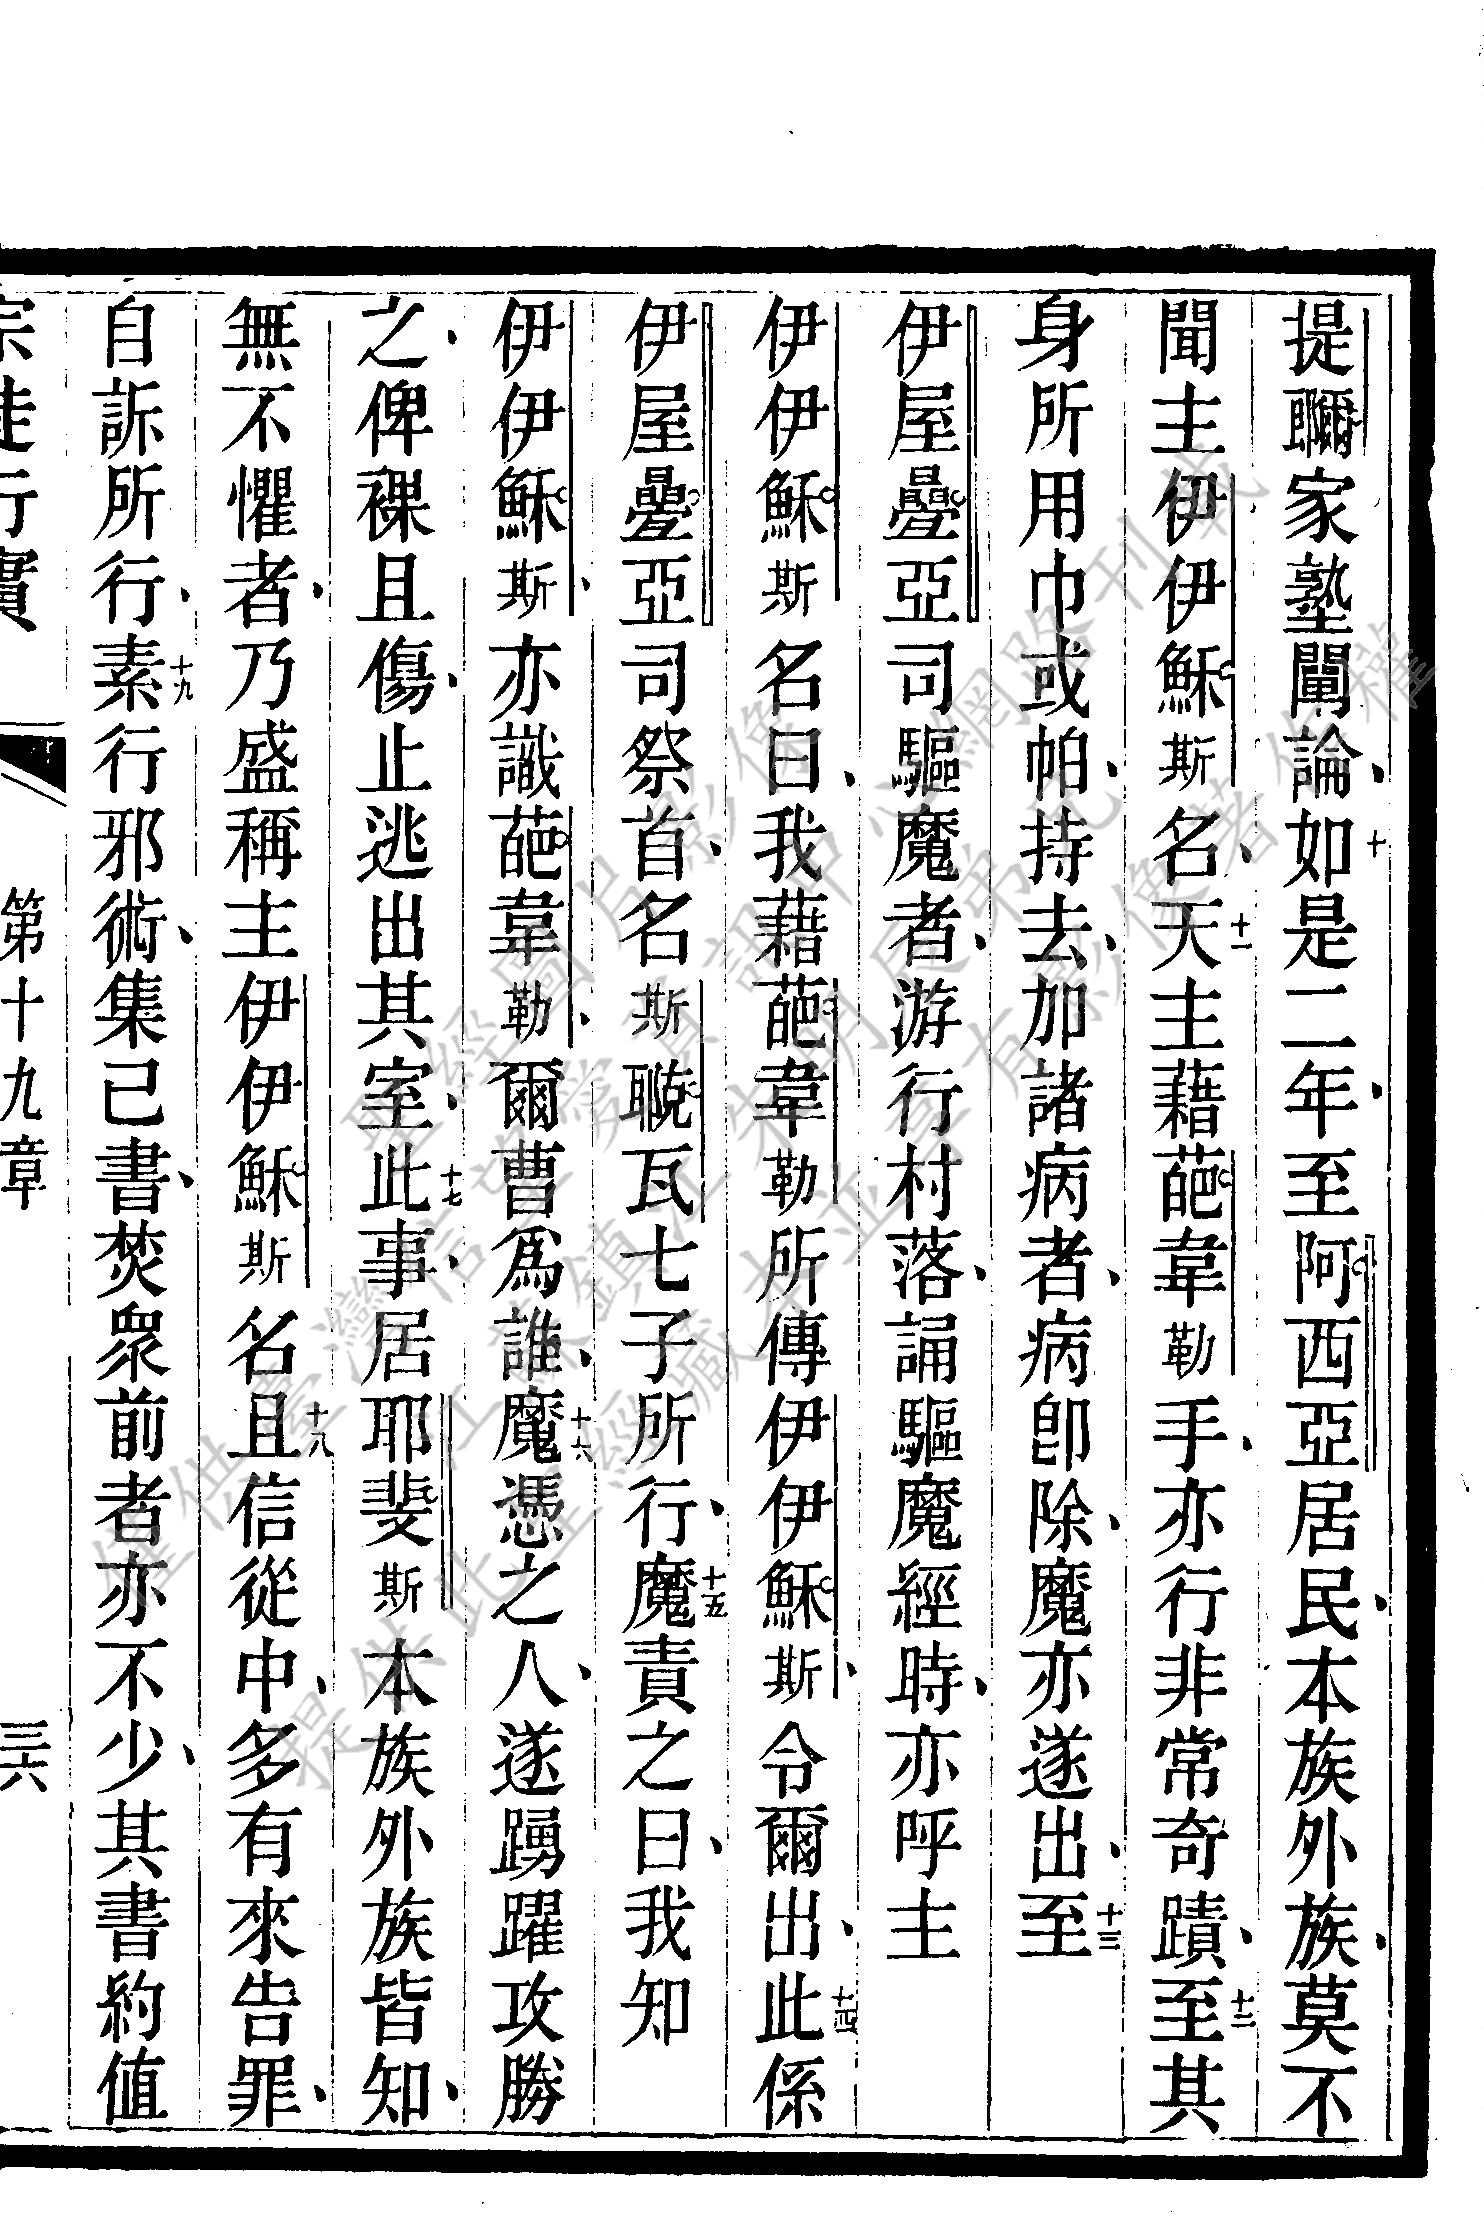 提郰家塾闡論、十如是二年、至阿西亞居民、本族外族、莫不
聞主伊伊穌斯名、十一天主藉葩韋勒手、亦行非常奇蹟、十二至其
身所用巾或帕、持去、加諸病者、病卽除、魔亦遂出、十三至
伊屋疊亞司驅魔者、游行村落、誦驅魔經時、亦呼主
伊伊穌斯名曰、我藉葩韋勒所傳伊伊穌斯、令爾出、十四此係
伊屋疊亞司祭首、名斯瓦七子所行、十五魔責之曰、我知
伊伊穌斯、亦識葩韋勒、爾曹爲誰、十六魔憑之人、遂踴躍攻勝
之、俾裸且傷、止逃出其室、十七此事、居耶斐斯本族外族皆知、
無不懼者、乃盛稱主伊伊穌斯名、十八且信從中、多有來告罪、
自訴所行、十九素行邪術、集己書、焚眾前者亦不少、其書約値
宗徒行實
第十九章
三六